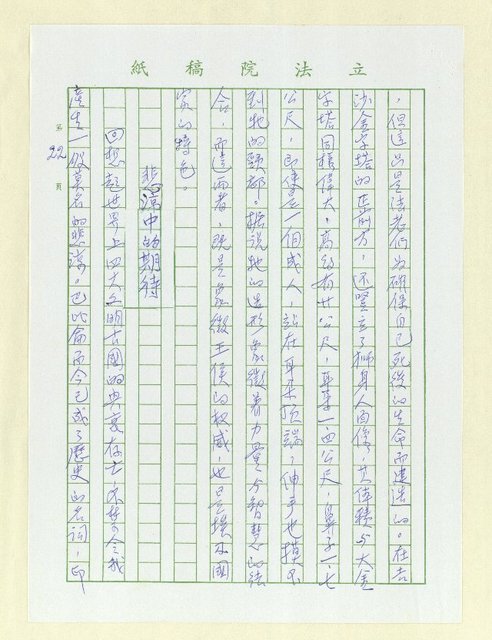 立法院稿紙
，但這只是法老們為確保自己死後的生命而建造的。在吉
沙金字塔的正前方，還豎立了獅身人面像，其体積与大金
字塔同樣偉大，高約有廿公尺，耳朵一·四公尺，鼻子一·七
公尺，即使是一個成人，站在耳朵頂端，伸手也摸不
到牠的頭部。據說牠的造形象徵着力量与智慧的結
合，而這兩者，既是象徵王侯的权威，也已是埃及國
家的特色。
悲涼中的期待
回想起世界上四大文明古國的興衰存亡，不禁令我
產生一股莫名的悲涼。巴比侖而今已成了歷史的名詞，印
第22頁